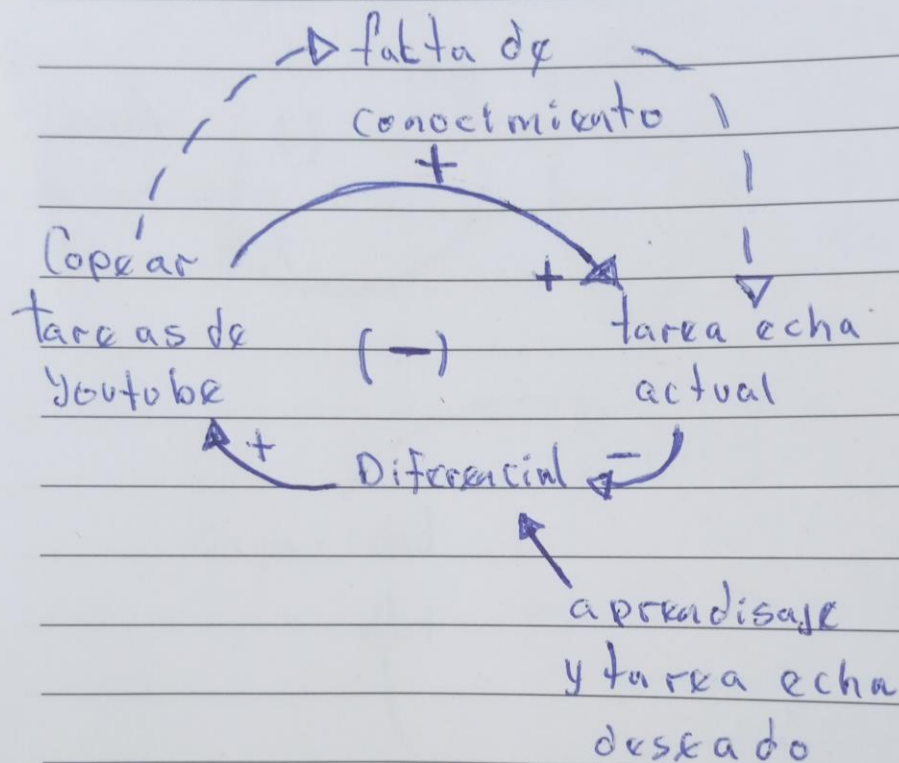 falta de
conocimiento
+
Copear
+
tareas de
(-)
tarea echa
youtube
actual
+
Diferencial
-
aprendisaje
y tarea echa
deseado